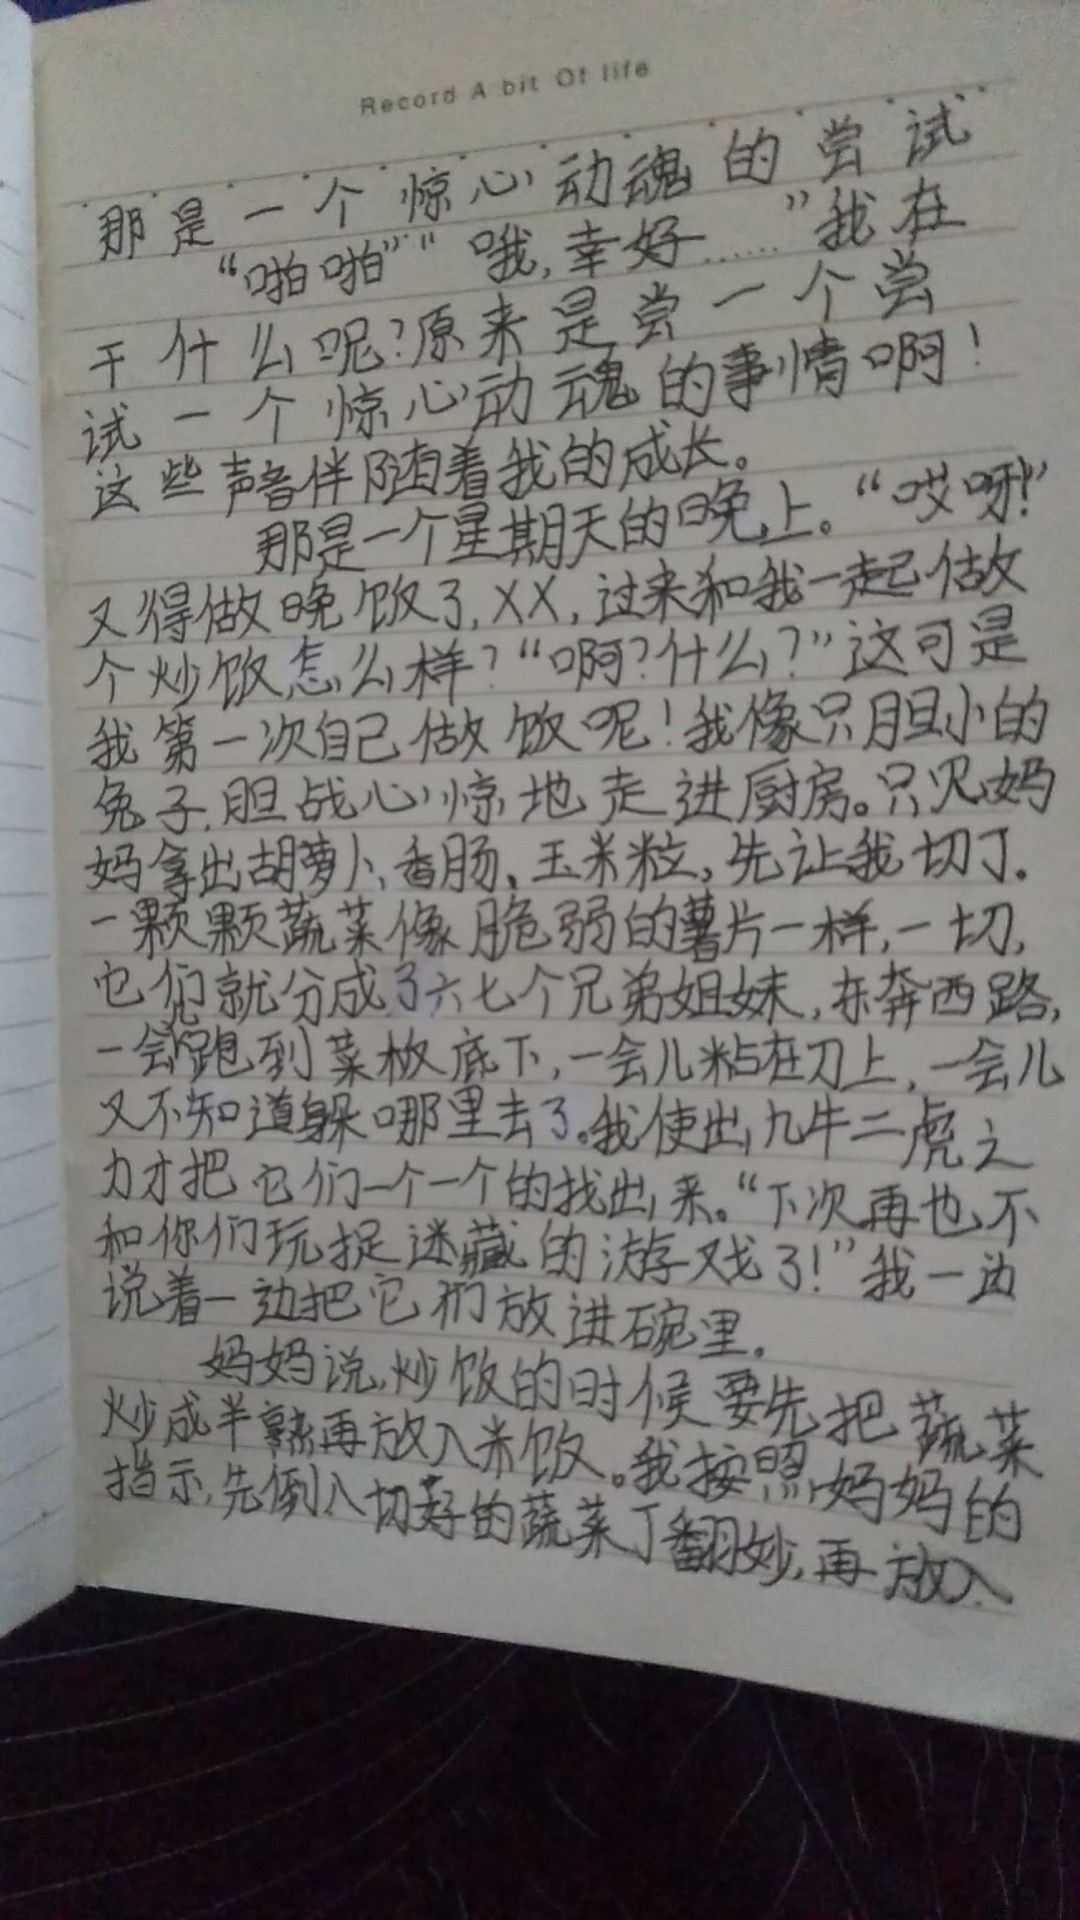 Record A bit Of life
那是一个惊心动魂的尝试
“啪啪”“哦,幸好……”我在
干什么呢?原来是尝一个尝
试一个惊心动魂的事情啊!
这些声音伴随着我的成长。
那是一个星期天的晚上。“哎呀!”
又得做晚饭了,XX,过来和我一起做
个炒饭,怎么样?“啊?什么?”这可是
我第一次自己做饭呢!我像只胆小的
兔子,胆战心惊地走进厨房。只见妈
妈拿出胡萝卜、香肠、玉米粒,先让我切丁.
一颗颗蔬菜像脆弱的薯片一样,一切,
它们就分成了六七个兄弟姐妹,东奔西路,
一会儿跑到菜板底下,一会儿粘在刀上,一会儿
又不知道躲哪里去了。我使出九牛二虎之
力才把它们一个一个的找出来。“下次再也不
和你们玩捉迷藏的游戏了!”我一边
说着一边把它们放进碗里.
妈妈说,炒饭的时候要先把蔬菜
炒成半熟再放入米饭。我按照妈妈的
指示,先倒入切好的蔬菜丁翻炒,再放入